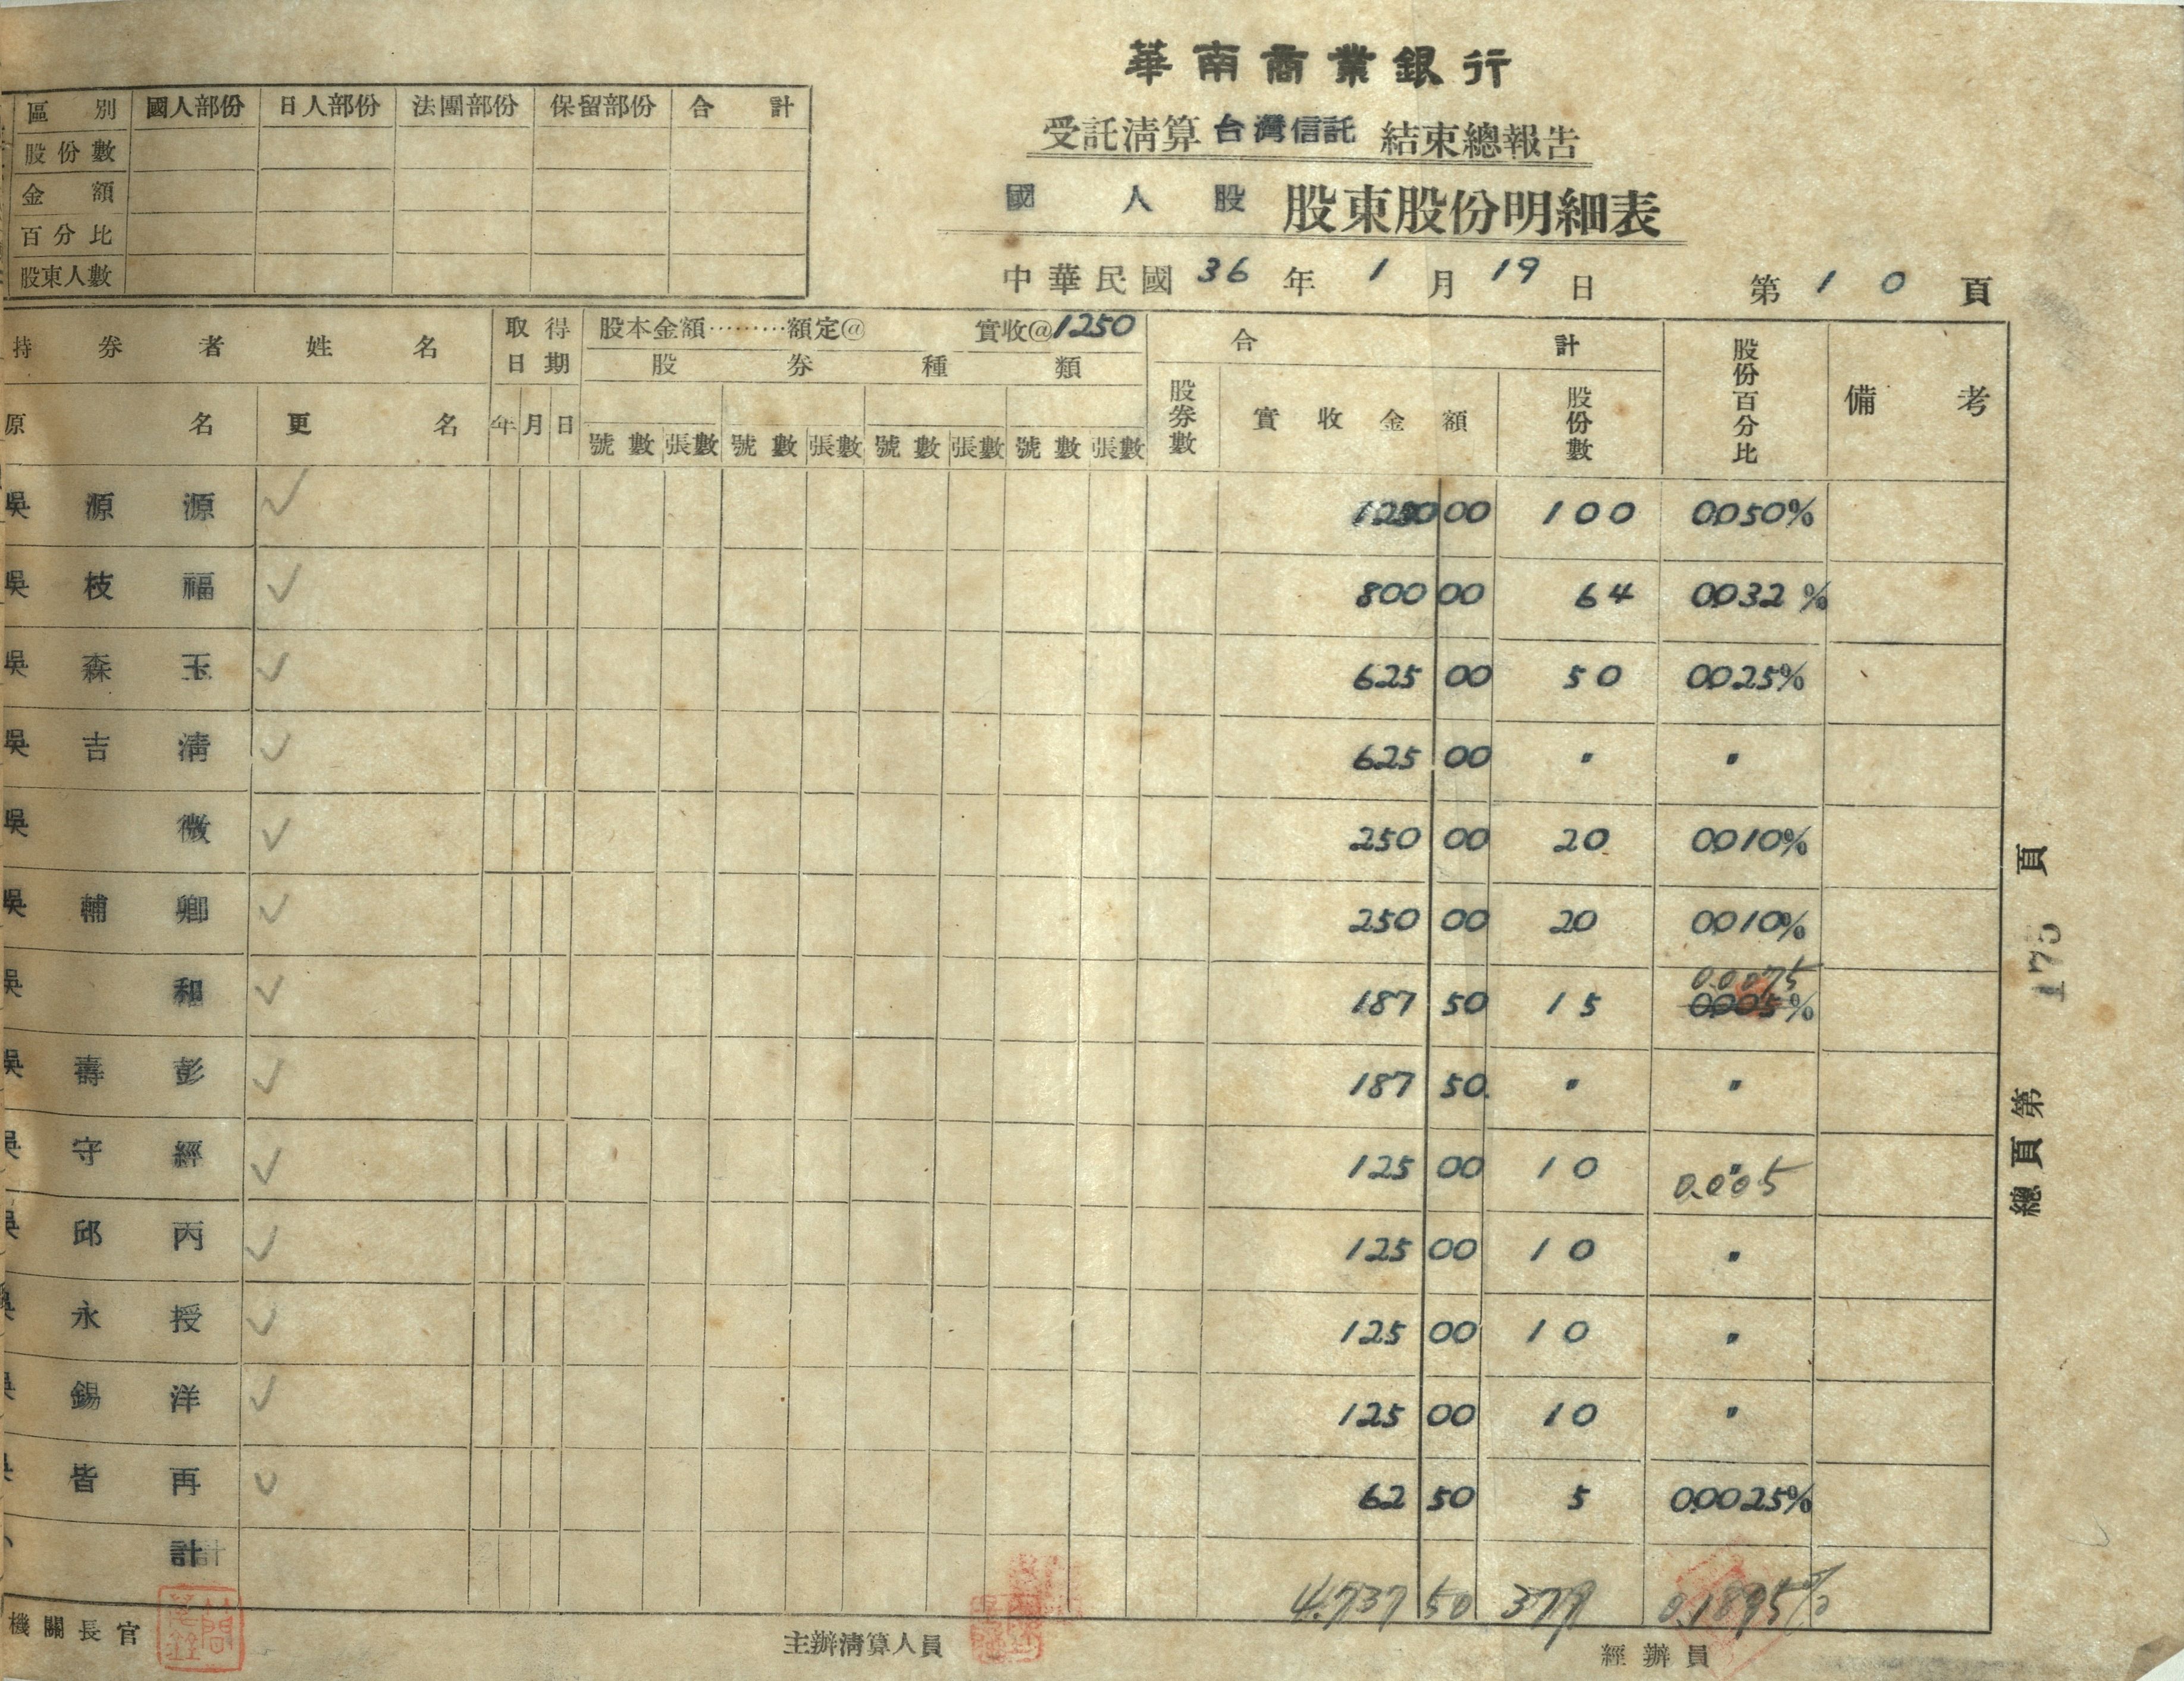 華南商業銀行
受託清算 台灣信託 結束總報告
國人股 股東股份明細表
中華民國 36 年 1 月 19 日 第 1 0 頁
區別 國人部份 日人部份 法團部份 保留部份 合計
股份數
金額
百分比
股東人數
持券者姓名 取得日期 股本金額………額定@ 實收@1250 合計 股份百分比 備考
股券種類
原名 更名 年 月 日 號數 張數 號數 張數 號數 張數 號數 張數 股券數 實收金額 股份數
吳源源 ✓ 1250 00 100 0050%
吳枝福 ✓ 800 00 64 0032%
吳森玉 ✓ 625 00 50 0025%
吳吉清 ✓ 625 00 〃 〃
吳微 ✓ 250 00 20 0010%
吳輔卿 ✓ 250 00 20 0010%
吳和 ✓ 187 50 15 0.0075 0005%
吳壽彭 ✓ 187 50 〃 〃
吳守經 ✓ 125 00 10 〃 0.005
吳邱丙 ✓ 125 00 10 〃
吳永授 ✓ 125 00 10 〃
吳錫洋 ✓ 125 00 10 〃
吳皆再 ✓ 62 50 5 00025%
計 4,737 50 379 0.1895%
機關長官 主辦清算人員 經辦員
總頁第 175 頁